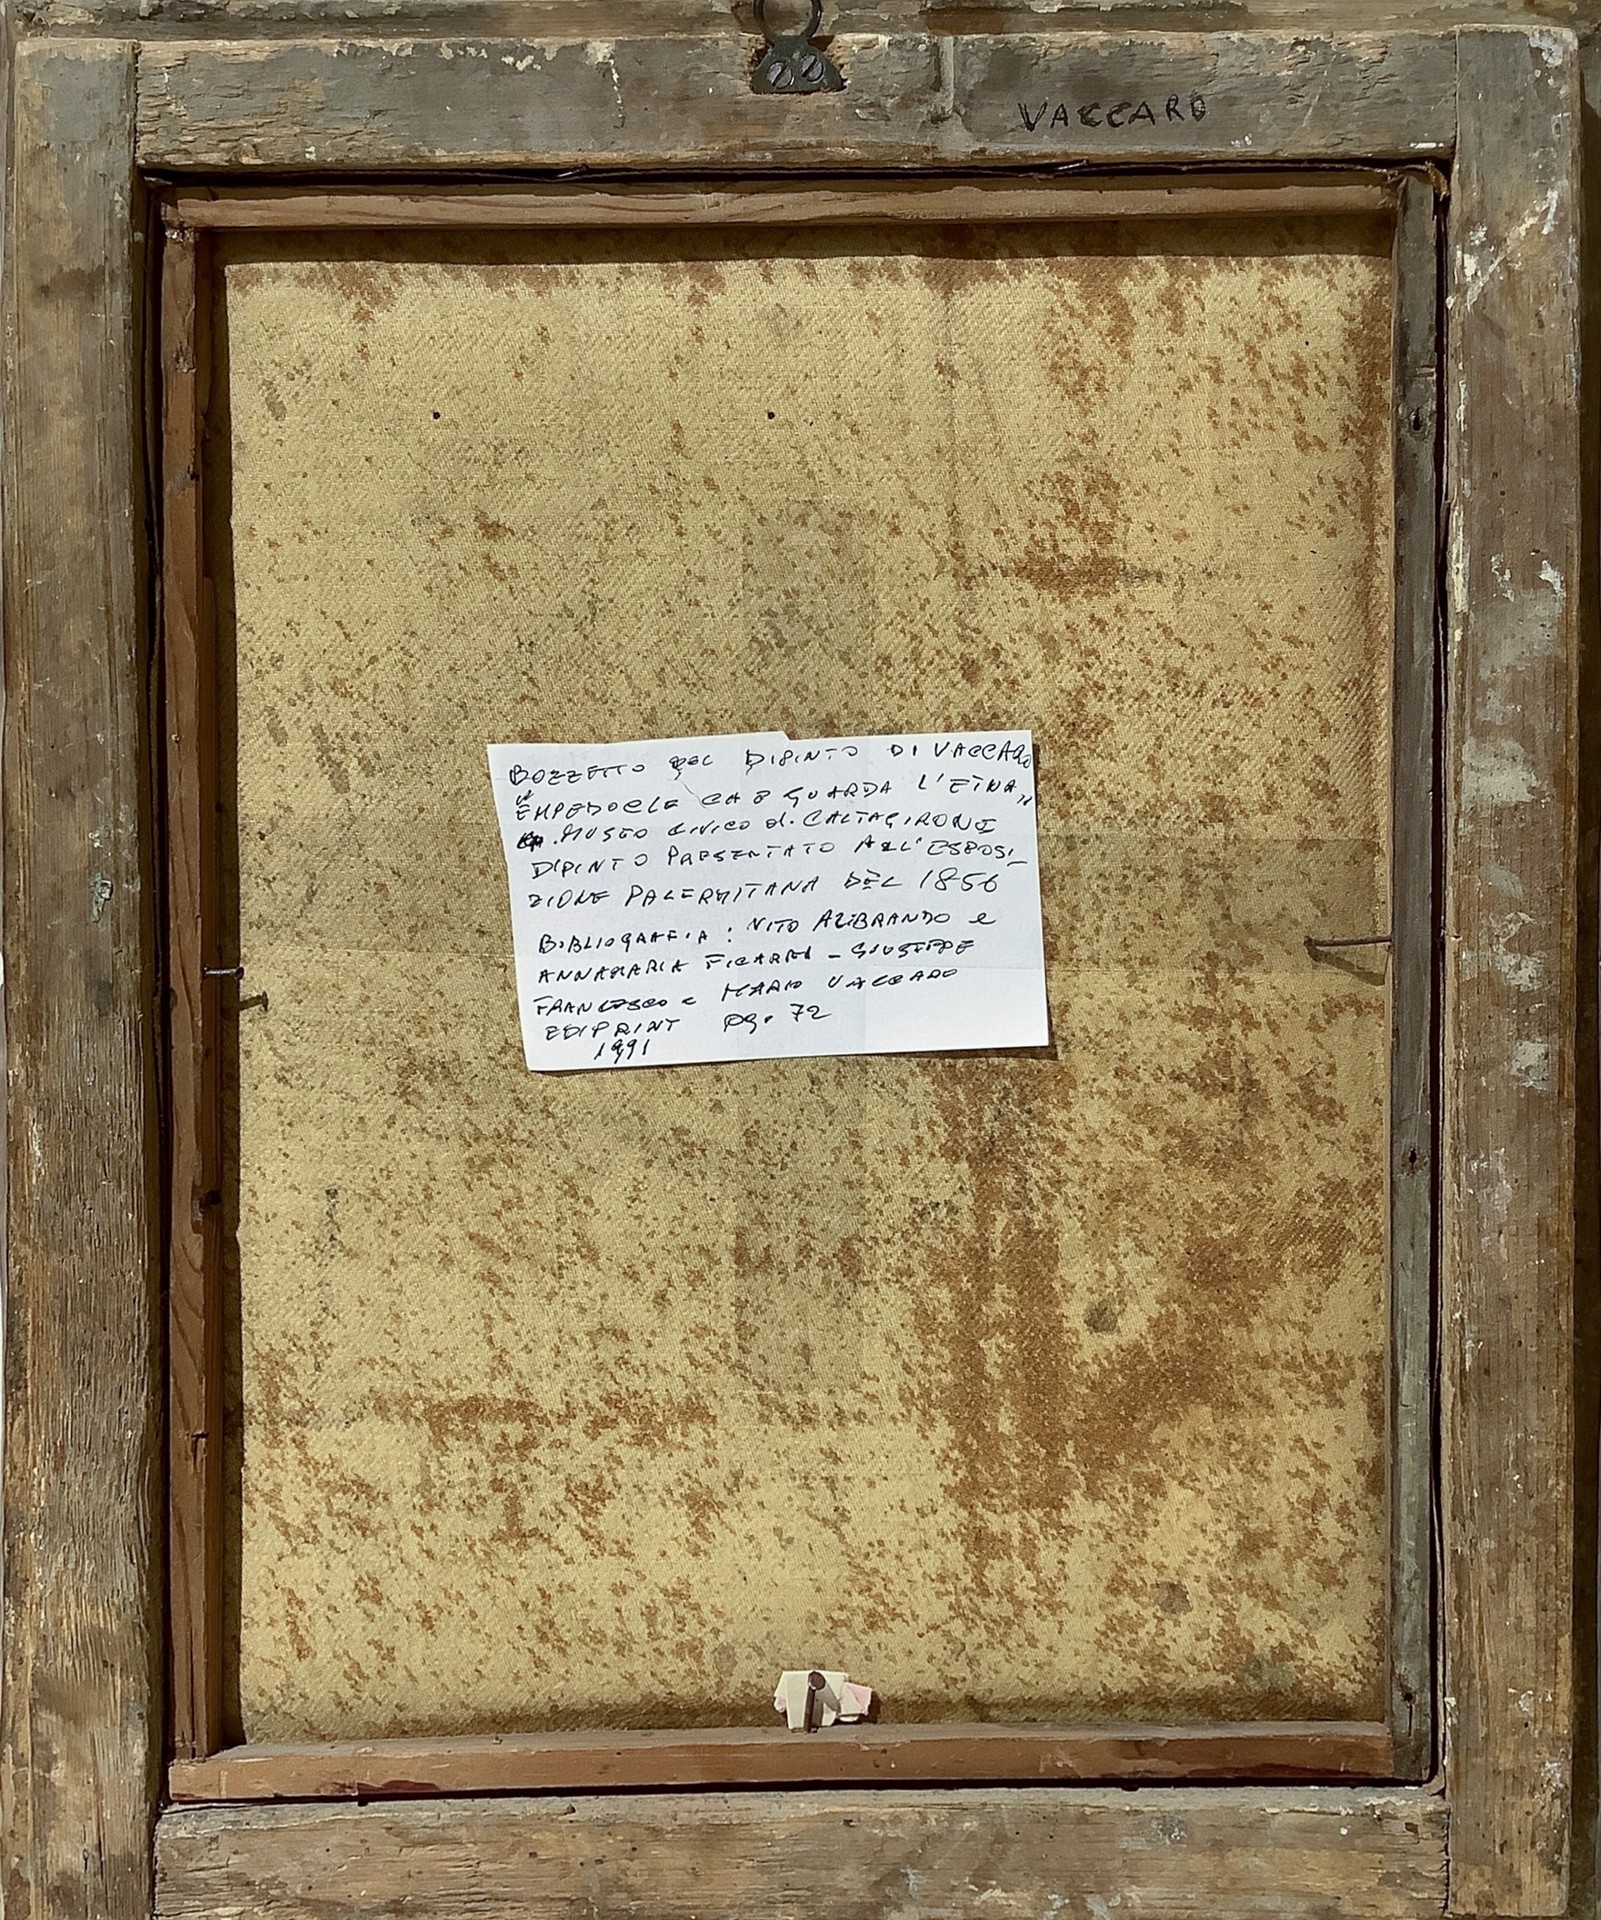 VACCARO
BOZZETTO DEL DIPINTO DI VACCARO
"EMPEDOCLE CHE GUARDA L'ETNA"
MUSEO CIVICO di CALTAGIRONE
DIPINTO PRESENTATO ALL'ESPOSI_
ZIONE PALERMITANA DEL 1856
BIBLIOGRAFIA: VITO ALIBRANDO e
ANNAMARIA FICARRA - GIUSEPPE
FRANCESCO e MARIO VACCARO
EDIPRINT pg. 72
1991